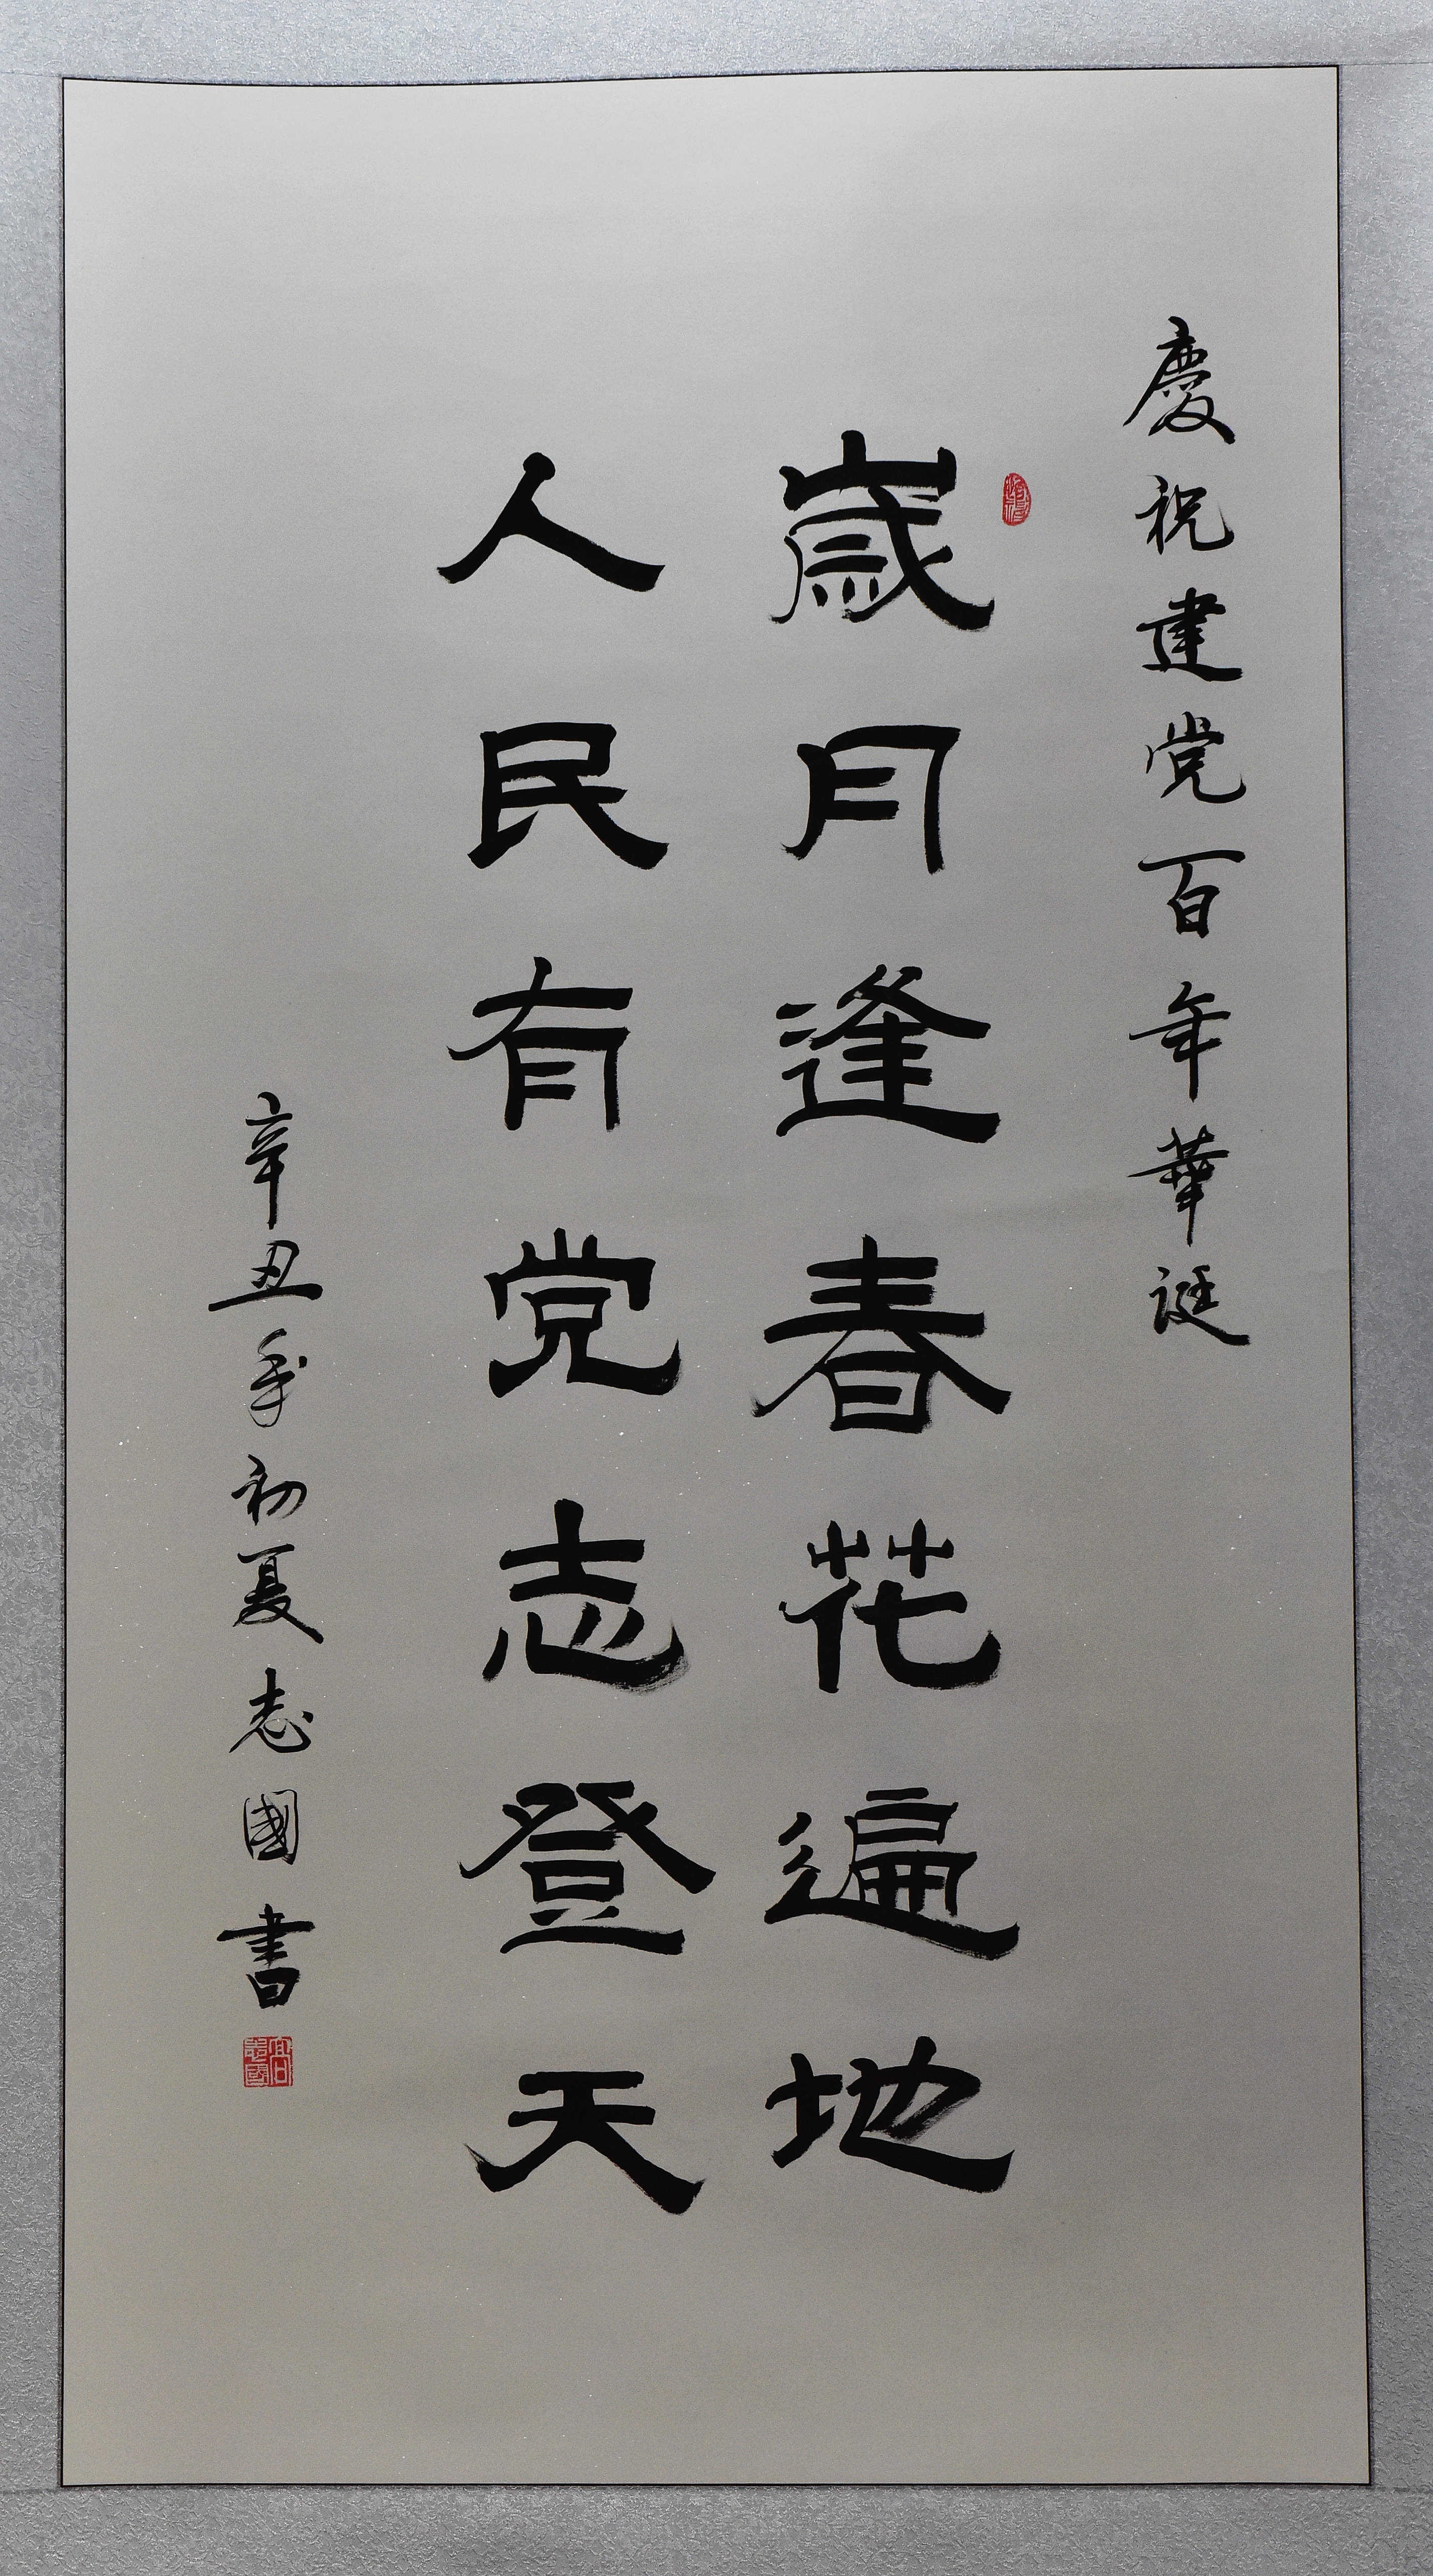 慶祝建党百年華誕
歲月逢春花遍地
人民有党志登天
辛丑年初夏志國書